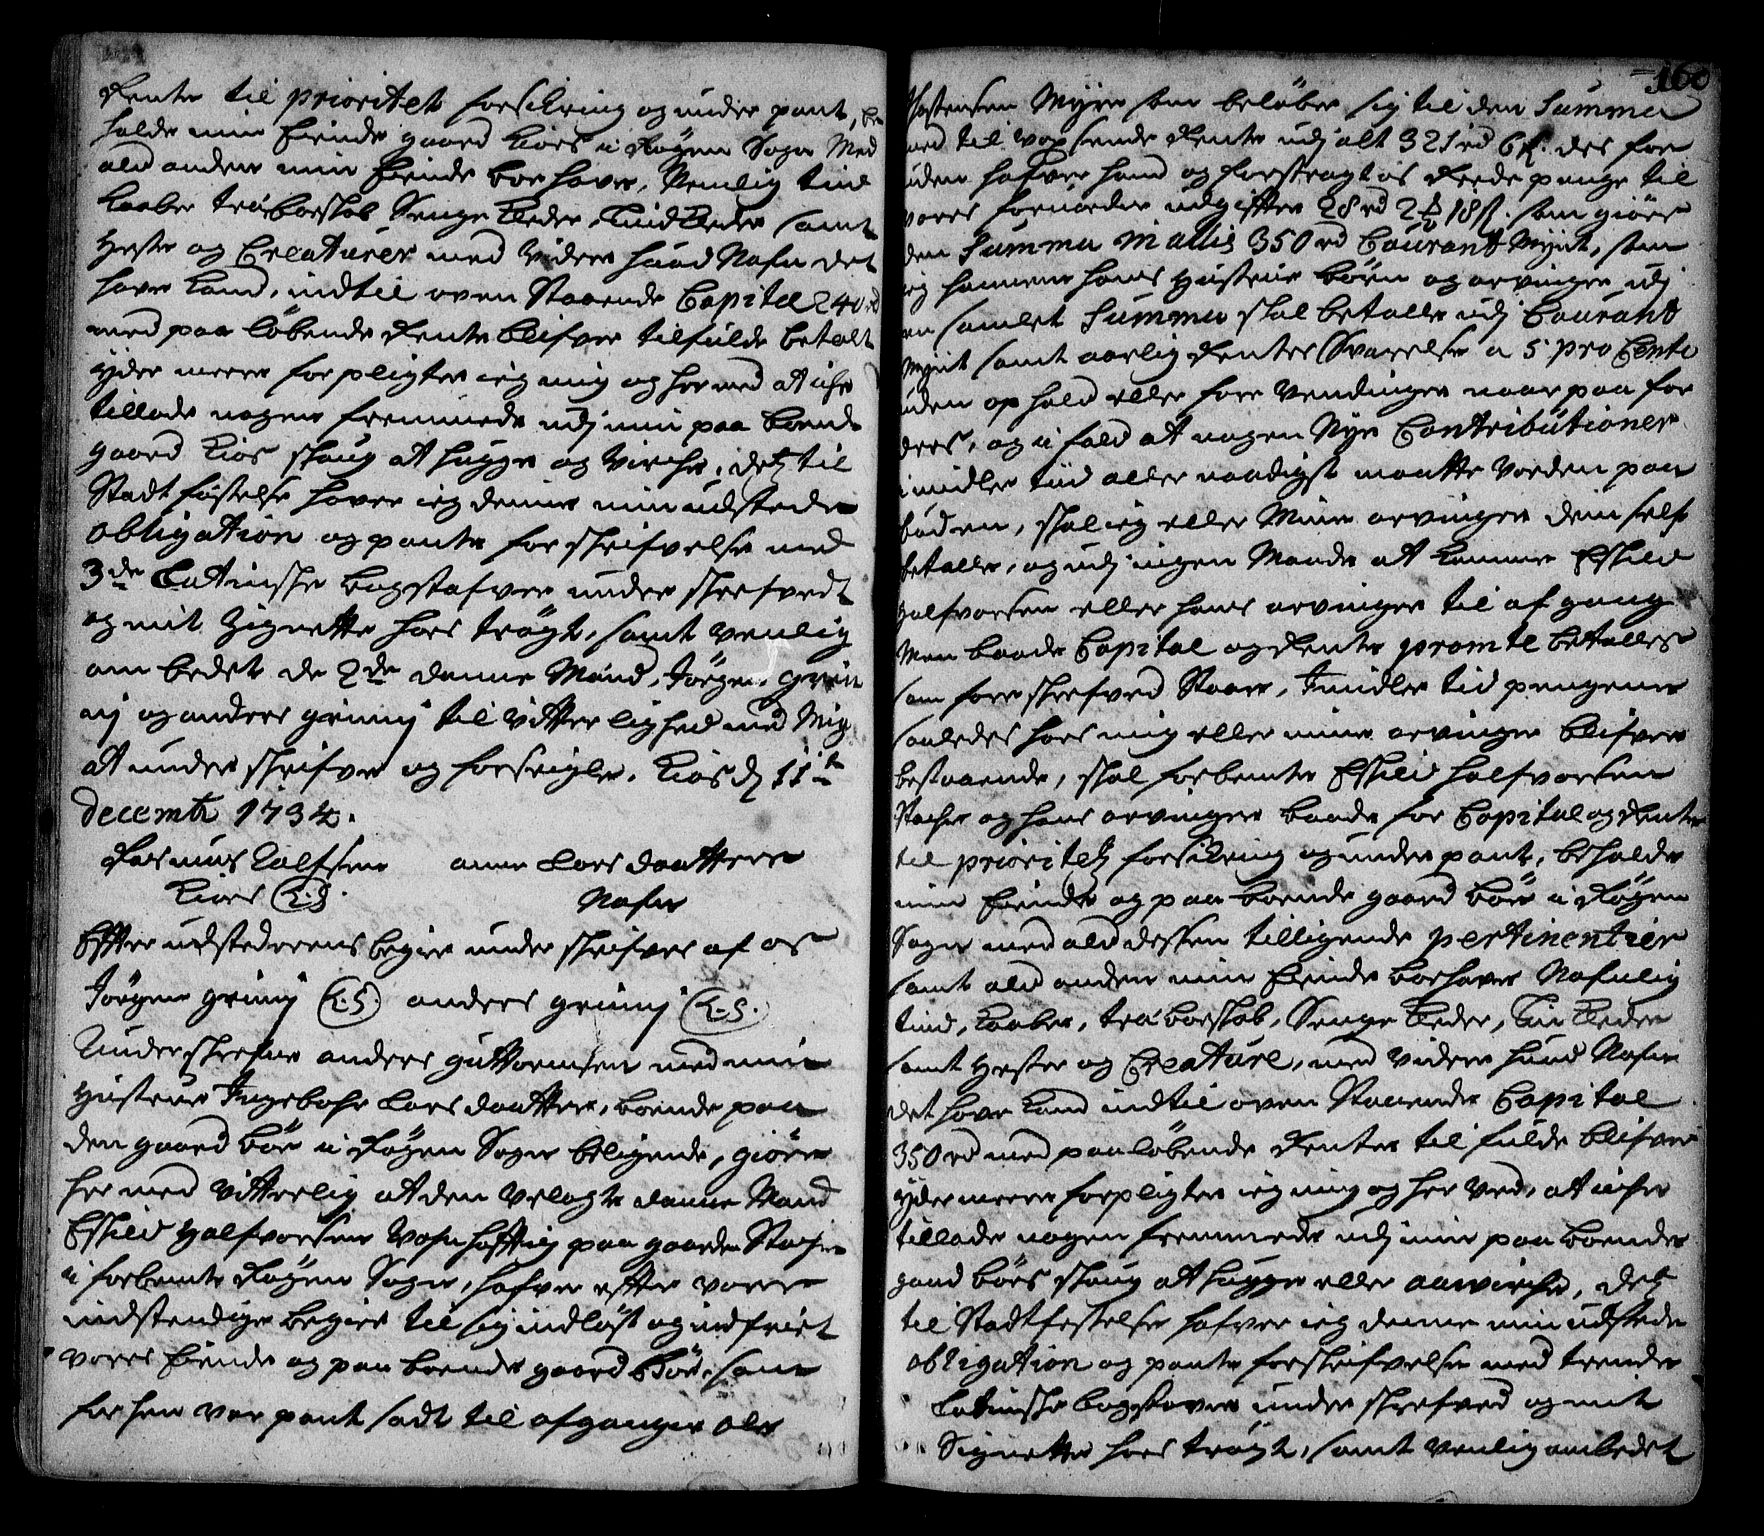 Rente til prioritet forsikring og under pant, be
holde min Eiende gaard Kios i Røgen Sogn Med
ald anden min Eiende boehave, Nemlig tind
Kaaber träboeskab Senge Klæder, Lind Klæder samt
Heste og Creaturer med Videre huad Nafn det
have Kand, indtil oven Staaende Capital 240 rd
med paa løbende Rente blifver tilfulde betalt
yder meere forpligter ieg mig og her med at iche
tillade nogen fremmede udj min paa boende
gaard Kios skoug at hugge og Virche, dets til
Stadfæstelse haver ieg denne min udstede
obligation og pante forskrifvelse med
3de Latinske bogstafver under skrefvedt
og mit Zignette hos trøgt, samt venlig
ombedet de 2de danne Mænd, Jørgen Grim
sj og anders grimsj til vitterlighed med Mig
at under skrifve og forseigle. Kios d 11te
decembr 1734.
Rasmus Rolfsen anne Lars daatter
Kios (L.S.) Nafn
Efter udstederens begier under skrifves af os
Jørgen grimsj (L.S.) anders grimsj (L.S.)
Underskrefne anders guttormsen med min
Hustrue Ingebohr Lars daatter, boende paa
den gaard bör i Røgen Sogn beligende, giøre
her med vitterlig at den velagte danne Mand
Eskild Halfvorsen Vahnhafftig paa gaarden Stoche
i forbemte Røgen Sogn, hafver efter vores
indstendige begier til sig indløst og indfriet
vores Eiende og paa boende gaard Bör, som
forhen var pant sadt til afgangne ole
160
Thostensen Myhre som beløber sig til den Summa
med til voxsende Rente udj alt 321 rd 6 s. des for
uden hafver hand og forstragt os Rede penge til
vores fornøden udgifter 28 rd 2 18 s. som giør
den Summa in allis 350 rd Courant Mynt, som
ieg hannem hans Hustrue børn og arvinger udj
en samlet Summa skal betalle udj Courant
Mynt samt aarlig Rentes Svarelse a 5 pro Cento
uden ophold eller fore vendinger naar paa for
dres, og i fald at nogen Nye Contributioner
imidler tiid aller naadigst maatte vorden paa
buden, skal ieg eller Mine arvinger dem self
betalle, og udj ingen Maade at komme Eskild
Halfvorsen eller hans arvinger til afgang
Men baade Capital og Rente promte betalles
som fore skrefved Staar, Imidler tid pengene
saaledes hos mig eller mine arvinger blifver
bestaaende, skal forbemte Eskild Halfvorsen
Stoche og hans arvinger baade for Capital og Rente
til prioritets forsikring og under pant, beholde
min Eiende og paa boende gaard bör i Røgen
Sogn med ald dessen tilligende pertinentier
samt ald anden min Eiende boehave Nafnlig
tind, Kaaber, träboeskab, Senge Klæder, Lin Klæder
samt Heste og Creature, med videre huad Nafn
det have Kand indtil oven Staaende Capital
350 rd med paaløbende Rente til fulde blifver
yder meere forpligter ieg mig og her ved, at iche
tillade nogen fremmede udj min paa boende
gaard børs skoug at hugge eller aawirche, dets
til Stadfestelse hafver ieg denne min udstede
obligation og pante forskrifvelse med trende
Latinske bogstaver under skrefved og mit
Signette hos trøgt, samt venlig ombedet